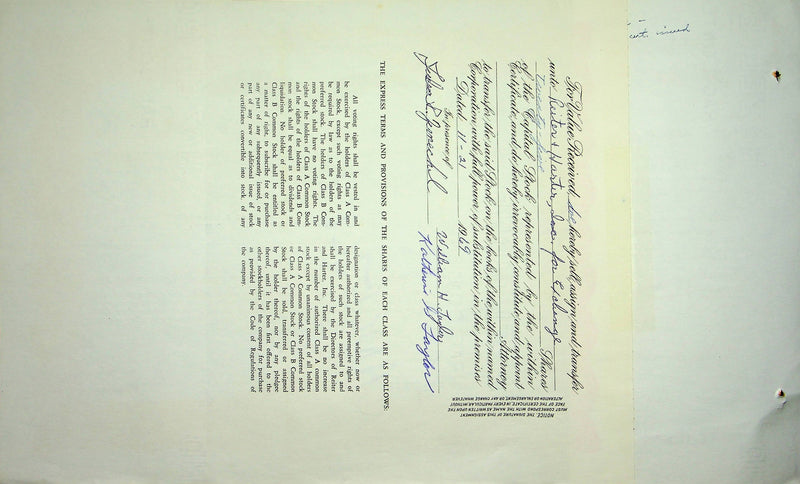 cert. issued
For Value Received, we hereby sell, assign and transfer
unto Reiter & Harter, Inc. for Exchange
Twenty four Shares
of the Capital Stock represented by the within
Certificate, and do hereby irrevocably constitute and appoint
Attorney
to transfer the said Stock on the books of the within named
Corporation with full power of substitution in the premises.
Dated 11-21 1969
In presence of
William H. Taylor
Kathryn W. Taylor
NOTICE. THE SIGNATURE OF THIS ASSIGNMENT
MUST CORRESPOND WITH THE NAME AS WRITTEN UPON THE
FACE OF THE CERTIFICATE, IN EVERY PARTICULAR, WITHOUT
ALTERATION OR ENLARGEMENT, OR ANY CHANGE WHATEVER.
THE EXPRESS TERMS AND PROVISIONS OF THE SHARES OF EACH CLASS ARE AS FOLLOWS:
All voting rights shall be vested in and
be exercised by the holders of Class A Com-
mon Stock, except such voting rights as may
be required by law as to the holders of the
preferred stock. The holders of Class B Com-
mon Stock shall have no voting rights. The
rights of the holders of Class A Common Stock
and the rights of the holders of Class B Com-
mon stock shall be equal as to dividends and
liquidation. No holder of preferred stock or
Class B Common Stock shall be entitled as
a matter of right, to subscribe for or purchase
any part of any subsequently issued, or any
part of any new or additional issue of stock
or certificates convertible into stock, of any
designation or class whatever, whether now or
hereafter authorized and all preemptive rights of
the holders of such stock are assigned to and
shall be exercised by the Directors of Reiter
and Harter, Inc. There shall be no increase
in the number of authorized Class A common
stock except by unanimous consent of all holders
of Class A Common Stock. No preferred stock
or Class A Common Stock or Class B Common
Stock shall be sold, transferred or assigned
by the holder thereof, nor by any pledgee
thereof, until it has been first offered to the
other stockholders of the company for purchase
as provided by the Code of Regulations of
the company.